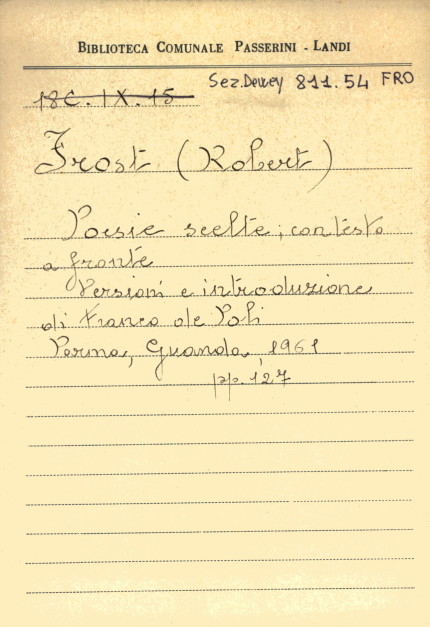 BIBLIOTECA COMUNALE PASSERINI - LANDI
Sez. Dewey 811.54 FRO
18C. IX. 15
Frost (Robert)
Poesie scelte; con testo
a fronte
Versioni e introduzione
di Franco de Poli
Parma, Guanda, 1961
pp. 127